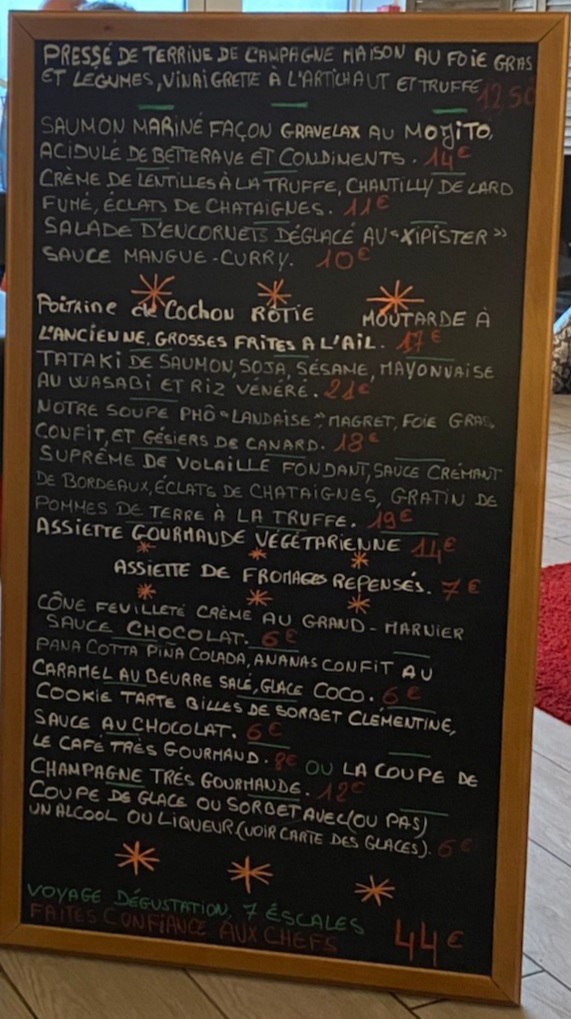 PRESSÉ DE TERRINE DE CAMPAGNE MAISON AU FOIE GRAS
ET LÉGUMES, VINAIGRETTE À L'ARTICHAUT ET TRUFFE 12,50
SAUMON MARINÉ FAÇON GRAVELAX AU MOJITO,
ACIDULÉ DE BETTERAVE ET CONDIMENTS. 14€
CRÈME DE LENTILLES À LA TRUFFE, CHANTILLY DE LARD
FUMÉ, ÉCLATS DE CHATAIGNES. 11€
SALADE D'ENCORNETS DÉGLACÉ AU "XIPISTER"
SAUCE MANGUE-CURRY. 10€
Poitrine de Cochon RÔTIE MOUTARDE À
L'ANCIENNE, GROSSES FRITES A L'AIL. 17€
TATAKI DE SAUMON, SOJA, SÉSAME, MAYONNAISE
AU WASABI ET RIZ VÉNÉRÉ. 21€
NOTRE SOUPE PHÔ "LANDAISE", MAGRET, FOIE GRAS,
CONFIT, ET GÉSIERS DE CANARD. 18€
SUPRÊME DE VOLAILLE FONDANT, SAUCE CRÉMANT
DE BORDEAUX, ÉCLATS DE CHATAIGNES, GRATIN DE
POMMES DE TERRE À LA TRUFFE. 19€
ASSIETTE GOURMANDE VÉGÉTARIENNE 14€
ASSIETTE DE FROMAGES REPENSÉS. 7€
CÔNE FEUILLETÉ CRÈME AU GRAND-MARNIER
SAUCE CHOCOLAT. 6€
PANA COTTA PINA COLADA, ANANAS CONFIT AU
CARAMEL AU BEURRE SALÉ, GLACE COCO. 6€
COOKIE TARTE BILLES DE SORBET CLÉMENTINE,
SAUCE AU CHOCOLAT. 6€
LE CAFÉ TRÉS GOURMAND. 8€ OU LA COUPE DE
CHAMPAGNE TRÉS GOURMANDE. 12€
COUPE DE GLACE OU SORBET AVEC (OU PAS)
UN ALCOOL OU LIQUEUR (VOIR CARTE DES GLACES). 6€
VOYAGE DÉGUSTATION, 7 ÉSCALES
FAITES CONFIANCE AUX CHEFS 44€